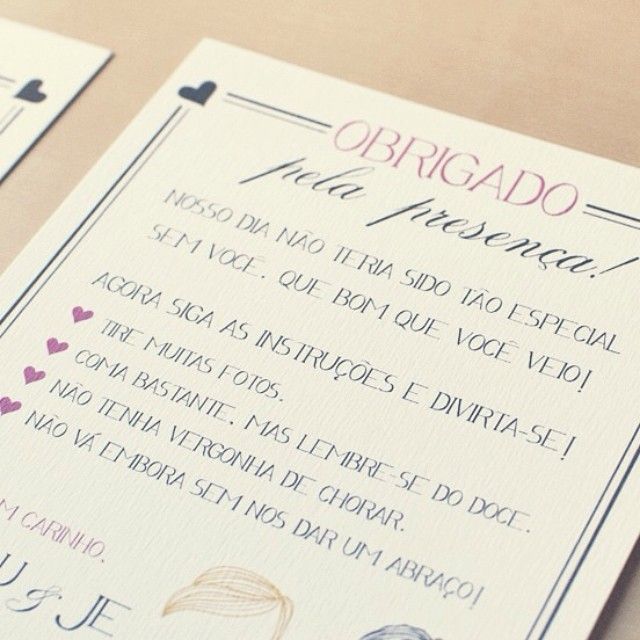 OBRIGADO
pela presença!
NOSSO DIA NÃO TERIA SIDO TÃO ESPECIAL
SEM VOCÊ, QUE BOM QUE VOCÊ VEIO!
AGORA SIGA AS INSTRUÇÕES E DIVIRTA-SE!
TIRE MUITAS FOTOS.
COMA BASTANTE, MAS LEMBRE-SE DO DOCE.
NÃO TENHA VERGONHA DE CHORAR.
NÃO VÁ EMBORA SEM NOS DAR UM ABRAÇO!
CARINHO,
& JE